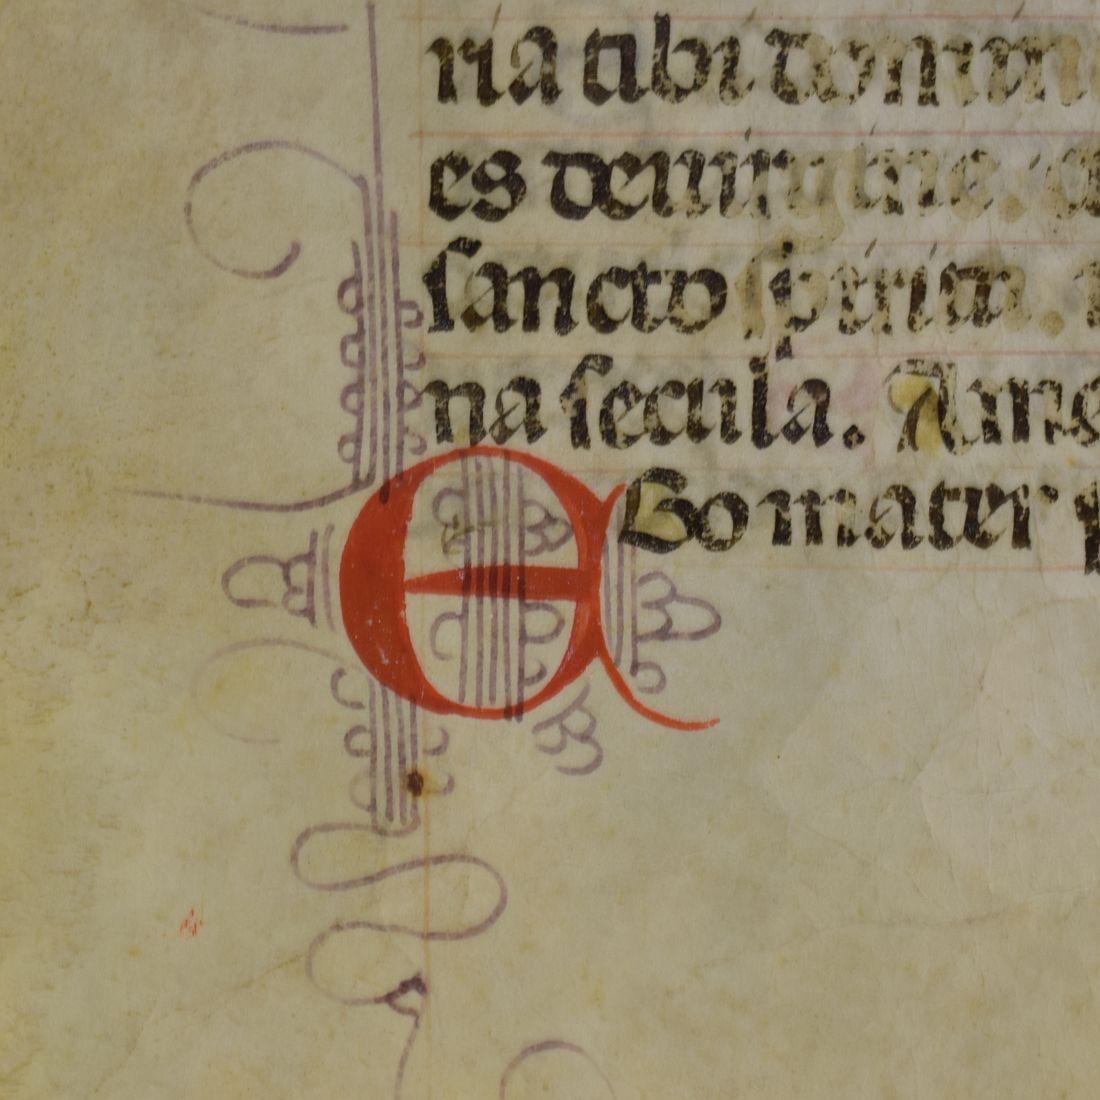 ria tibi domin
es de uirgine.
sancto spiritu.
na secula. Ame
EGo mater